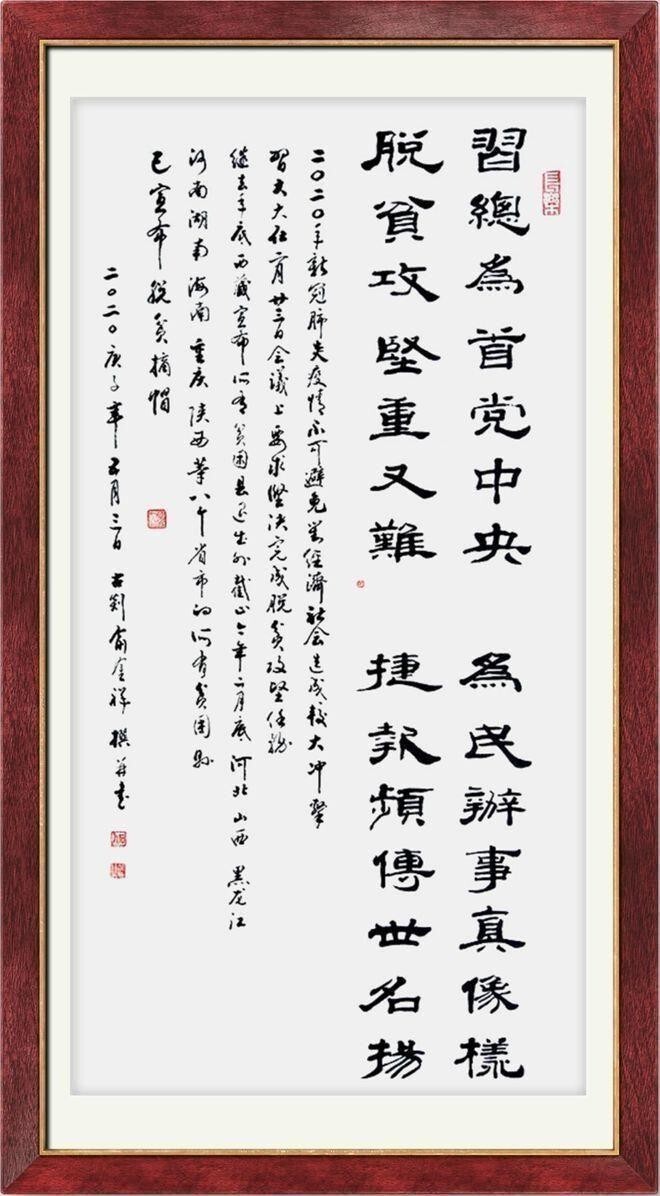 習總為首党中央 為民辦事真像樣
脫貧攻堅重又難 捷報頻傳世名揚
二〇二〇年新冠肺炎疫情不可避免對經濟社会造成較大冲擊
習大大在二月廿三日会議上要求堅決完成脫貧攻堅任務
继去年底西藏宣布所有贫困县退出外截止今年二月底河北山西黑龙江
河南湖南海南重庆陕西等八个省市的所有贫困县
已宣布脱贫摘帽
二〇二〇庚子年五月三日古剡俞金祥撰并書